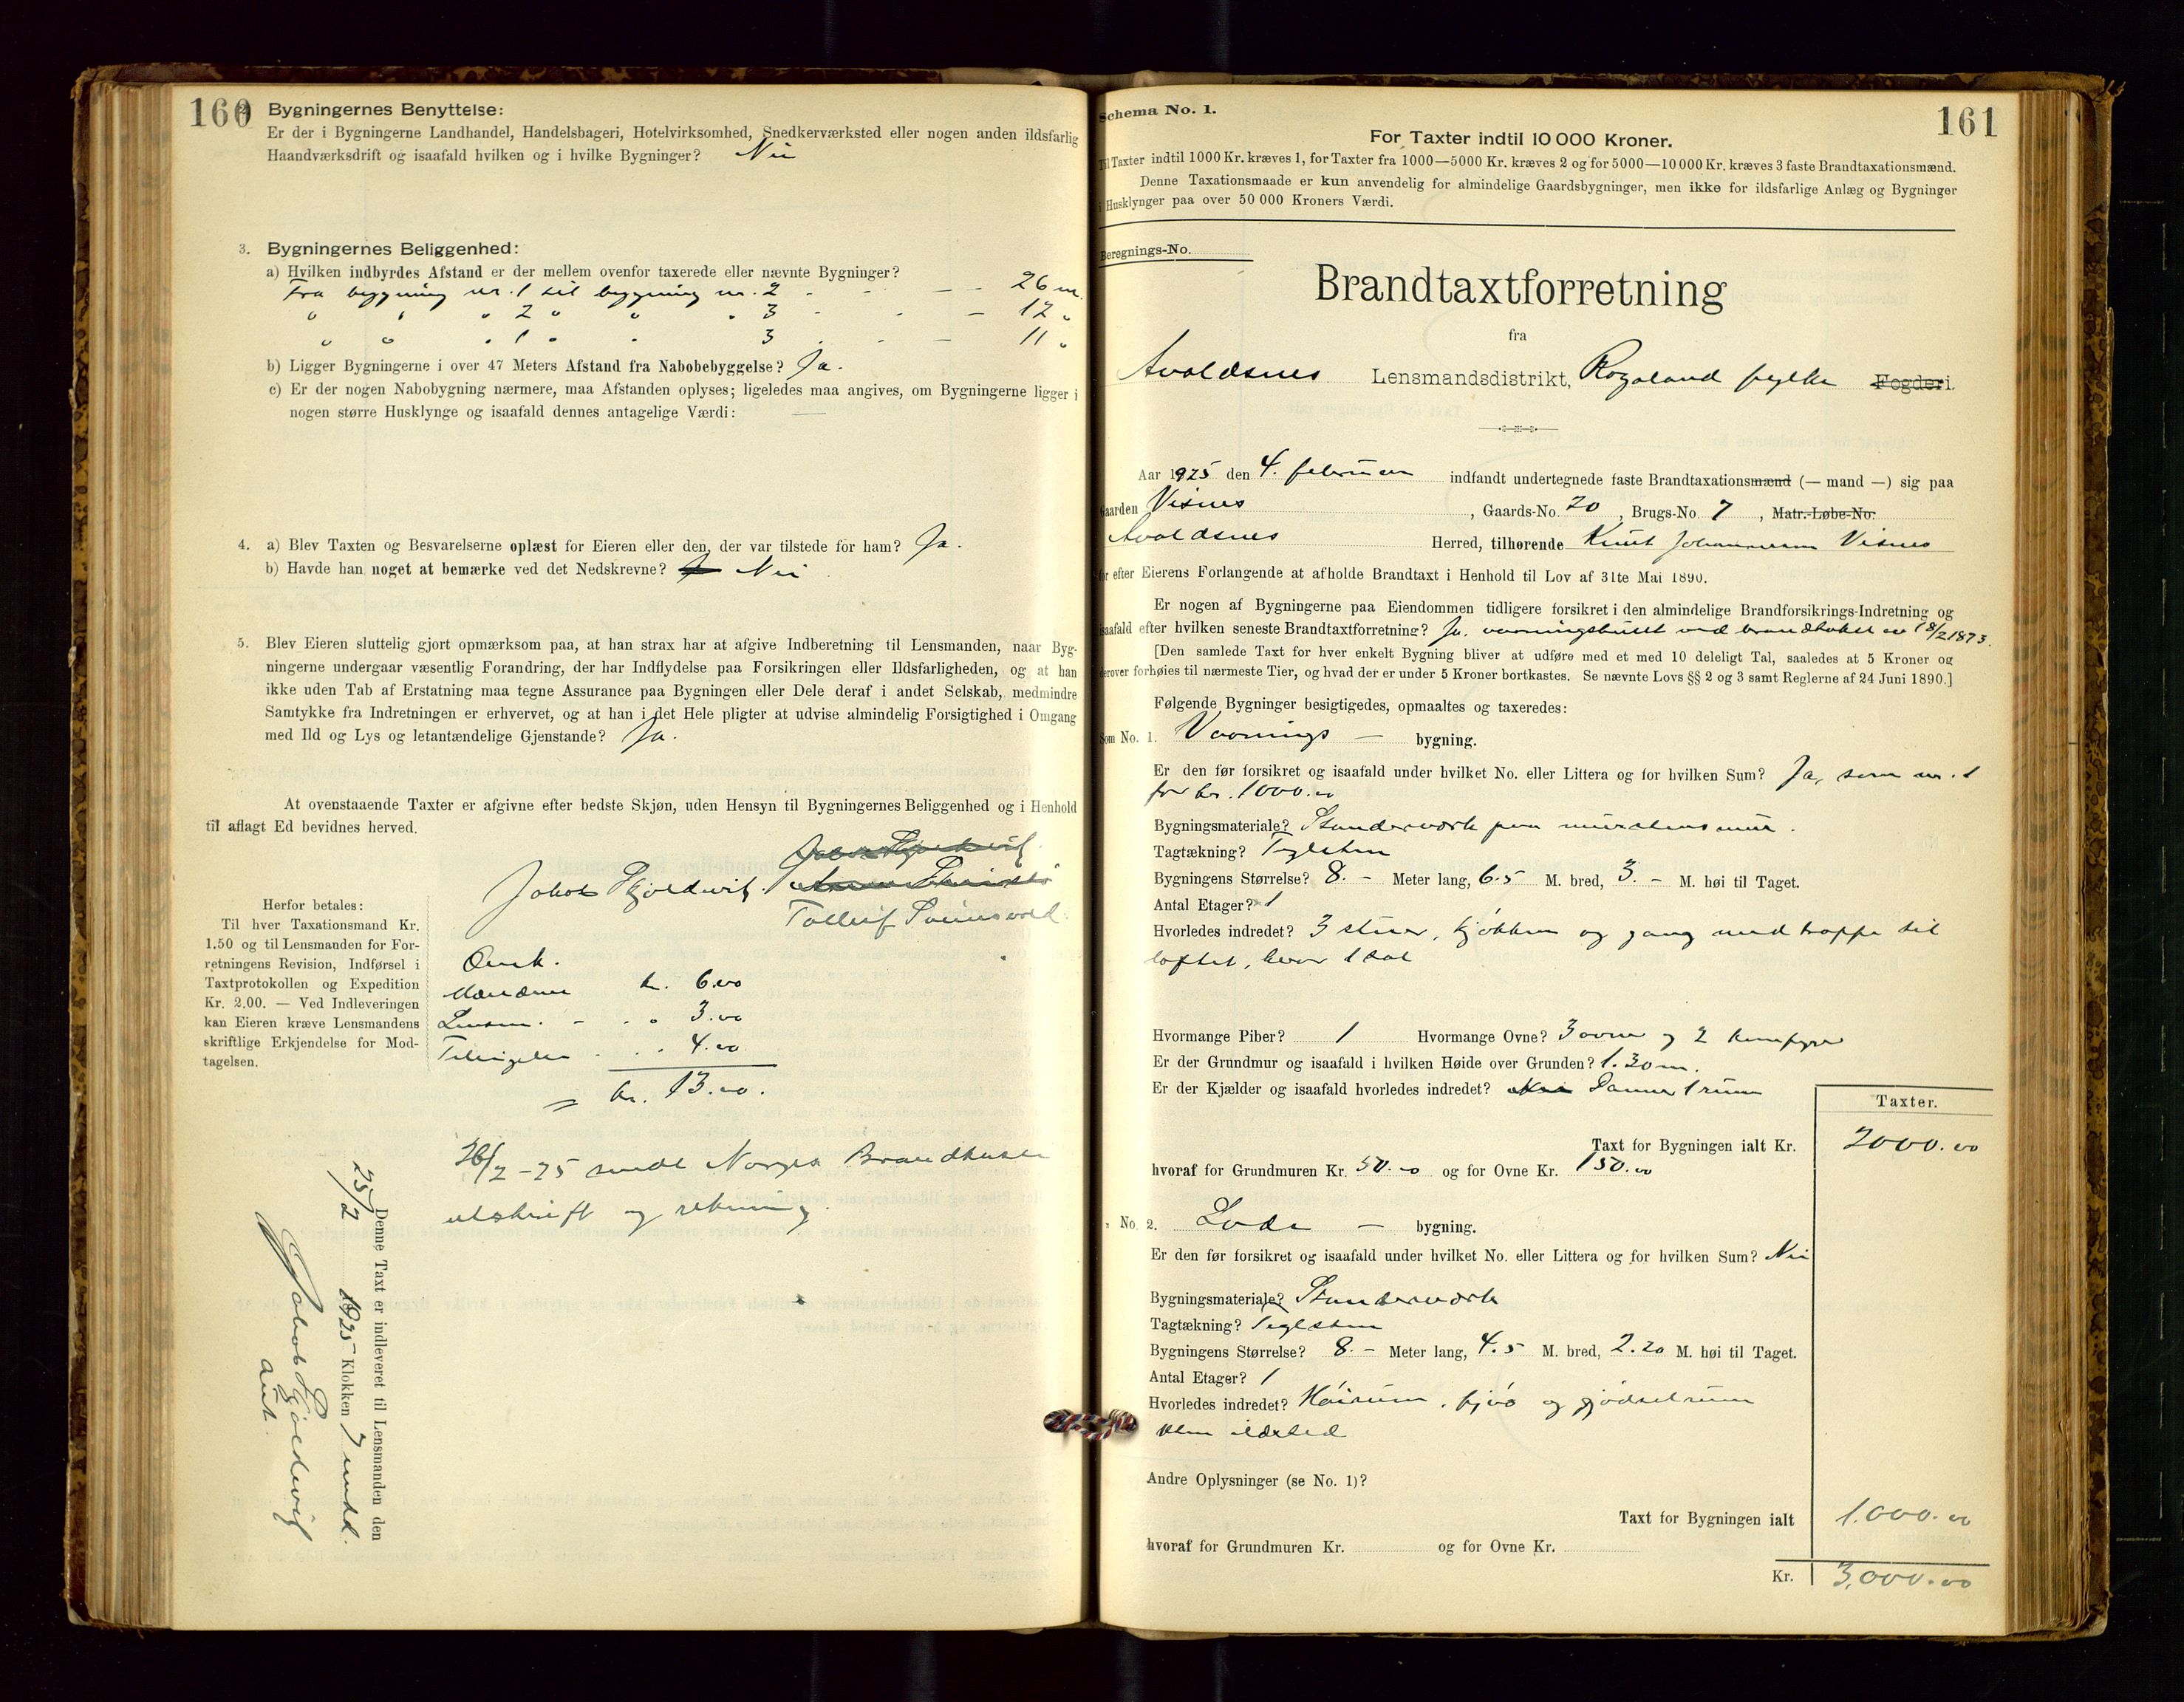 160
2. Bygningernes Benyttelse:
Er der i Bygningerne Landhandel, Handelsbageri, Hotelvirksomhed, Snedkerværksted eller nogen anden ildsfarlig
Haandværksdrift og isaafald hvilken og i hvilke Bygninger? Nei
3. Bygningernes Beliggenhed:
a) Hvilken indbyrdes Afstand er der mellem ovenfor taxerede eller nævnte Bygninger?
Fra bygning nr. 1 til bygning nr. 2 - - - - 26 m.
" " " 2 " " " 3 - - - 12 "
" " " 1 " " 3 - - - 11 "
b) Ligger Bygningerne i over 47 Meters Afstand fra Nabobebyggelse? Ja.
c) Er der nogen Nabobygning nærmere, maa Afstanden oplyses; ligeledes maa angives, om Bygningerne ligger i
nogen større Husklynge og isaafald dennes antagelige Værdi: —
4. a) Blev Taxten og Besvarelserne oplæst for Eieren eller den, der var tilstede for ham? Ja.
b) Havde han noget at bemærke ved det Nedskrevne? Nei
5. Blev Eieren sluttelig gjort opmærksom paa, at han strax har at afgive Indberetning til Lensmanden, naar Byg-
ningerne undergaar væsentlig Forandring, der har Indflydelse paa Forsikringen eller Ildsfarligheden, og at han
ikke uden Tab af Erstatning maa tegne Assurance paa Bygningen eller Dele deraf i andet Selskab, medmindre
Samtykke fra Indretningen er erhvervet, og at han i det Hele pligter at udvise almindelig Forsigtighed i Omgang
med Ild og Lys og letantændelige Gjenstande? Ja.
At ovenstaaende Taxter er afgivne efter bedste Skjøn, uden Hensyn til Bygningernes Beliggenhed og i Henhold
til aflagt Ed bevidnes herved.
Jakob Skjoldevik.
Tolleif Sveinsvold
Herfor betales:
Til hver Taxationsmand Kr.
1.50 og til Lensmanden for For-
retningens Revision, Indførsel i
Taxtprotokollen og Expedition
Kr. 2.00. — Ved Indleveringen
kan Eieren kræve Lensmandens
skriftlige Erkjendelse for Mod-
tagelsen.
kr. 6.00
Lensm. - - " 3.00
4.00
= kr. 13.00.
26/2-25 sendt Norges Brandkasse
utskrift og rekning.
Denne Taxt er indleveret til Lensmanden den
25/2 1925 Klokken 7 emdd.
Jakob Skjoldevik
aut.
161
Schema No. 1.
For Taxter indtil 10 000 Kroner.
Til Taxter indtil 1000 Kr. kræves 1, for Taxter fra 1000—5000 Kr. kræves 2 og for 5000—10 000 Kr. kræves 3 faste Brandtaxationsmænd.
Denne Taxationsmaade er kun anvendelig for almindelige Gaardsbygninger, men ikke for ildsfarlige Anlæg og Bygninger
i Husklynger paa over 50 000 Kroners Værdi.
Beregnings-No.
Brandtaxtforretning
fra
Avaldsnes Lensmandsdistrikt, Rogaland fylke Fogderi.
Aar 1925 den 4. februar indfandt undertegnede faste Brandtaxationsmænd (— mand —) sig paa
Gaarden Visnes, Gaards-No. 20, Brugs-No. 7, Matr.-Løbe-No.
Avaldsnes Herred, tilhørende Knut Johannesen Visnes
for efter Eierens Forlangende at afholde Brandtaxt i Henhold til Lov af 31te Mai 1890.
Er nogen af Bygningerne paa Eiendommen tidligere forsikret i den almindelige Brandforsikrings-Indretning og
isaafald efter hvilken seneste Brandtaxtforretning? Ja. vaaningshuset ved brandtakst av 18/2 1873.
[Den samlede Taxt for hver enkelt Bygning bliver at udføre med et med 10 deleligt Tal, saaledes at 5 Kroner og
derover forhøies til nærmeste Tier, og hvad der er under 5 Kroner bortkastes. Se nævnte Lovs §§ 2 og 3 samt Reglerne af 24 Juni 1890.]
Følgende Bygninger besigtigedes, opmaaltes og taxeredes:
Som No. 1. Vaanings — bygning.
Er den før forsikret og isaafald under hvilket No. eller Littera og for hvilken Sum? Ja, som nr. 1
for kr. 1000.00
Bygningsmateriale? Standerverk paa murstensmur.
Tagtækning? Teglsten
Bygningens Størrelse? 8.- Meter lang, 6.5 M. bred, 3.- M. høi til Taget.
Antal Etager? 1
Hvorledes indredet? 3 stuer, kjøkken og gang med trappe til
loftet, hvor 1 sal
Hvormange Piber? 1 Hvormange Ovne? 3 ovne og 2 komfyrer
Er der Grundmur og isaafald i hvilken Høide over Grunden? 1.30 m.
Er der Kjælder og isaafald hvorledes indredet? 1 rum
Taxter.
Taxt for Bygningen ialt Kr. 2000.00
hvoraf for Grundmuren Kr. 50.00 og for Ovne Kr. 150.00
" No. 2. Lode — bygning.
Er den før forsikret og isaafald under hvilket No. eller Littera og for hvilken Sum? Nei
Bygningsmateriale? Standerverk
Tagtækning? Teglsten
Bygningens Størrelse? 8.- Meter lang, 4.5 M. bred, 2.20 M. høi til Taget.
Antal Etager? 1
Hvorledes indredet? Høirum, fjøs og gjødselrum
uten ildsted
Andre Oplysninger (se No. 1)?
Taxt for Bygningen ialt 1.000.00
hvoraf for Grundmuren Kr. og for Ovne Kr.
Kr. 3,000.00